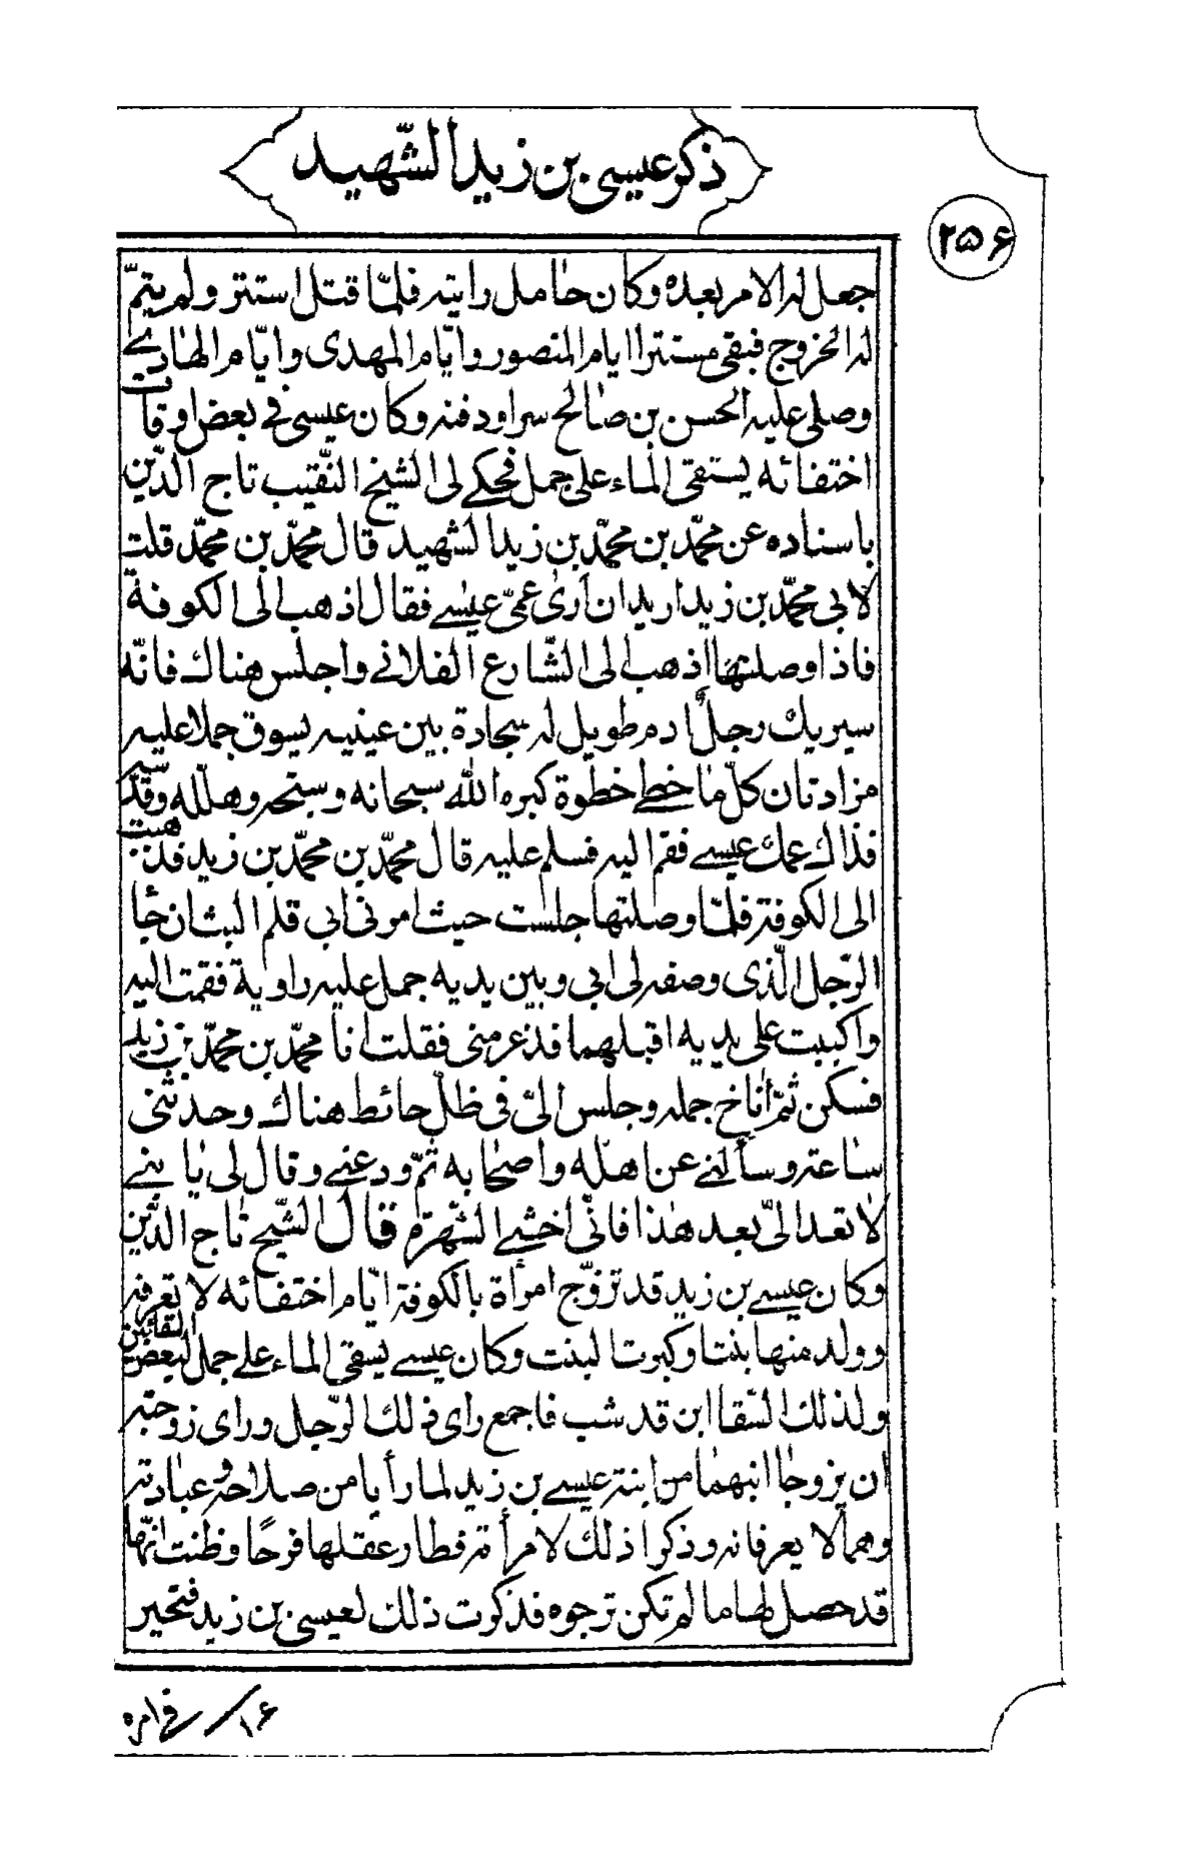 ذكر عيسى بن زيد الشّهيد
۲۵۶
جعل له الامر بعده وكان حامل رايته فلمّا قتل استتر ولم يتمّ
له الخروج فبقى مستترا ايام المنصور وايّام المهدى وايّام الهادي
وصلى عليه الحسن بن صالح سرا ودفنه وكان عيسى في بعض اوقات
اختفائه يستقى الماء على جمل فحكى لى الشيخ النّقيب تاج الدّين
باسناده عن محمّد بن محمّد بن زيد الشهيد قال محمّد بن محمّد قلت
لابي محمّد بن زيد اريد ان ارى عمّي عيسى فقال اذهب الى الكوفة
فاذا وصلتها اذهب الى الشّارع الفلاني واجلس هناك فانّه
سيريك رجل آدم طويل له سجادة بين عينيه يسوق جملا عليه
مزادتان كلّ ما خطى خطوة كبره الله سبحانه وسبّحه وهلّله وقدّسه
فذاك عمك عيسى فقم اليه فسلم عليه قال محمّد بن محمّد بن زيد فذهبت
الى الكوفة فلمّا وصلتها جلست حيث امرنى ابي فلم البث ان جاء
الرّجل الّذى وصفه لى ابي وبين يديه جمل عليه راوية فقمت اليه
واكببت على يديه اقبلهما فذعر منى فقلت انا محمّد بن محمّد بن زيد
فسكن ثمّ اناخ جمله وجلس الىّ فى ظلّ حائط هناك وحدثنى
ساعة وسألنى عن اهله واصحابه ثمّ ودعنى وقال لى يا بنى
لا تعد الىّ بعد هذا فانّى اخشى الشّهرة قال الشّيخ تاج الدّين
وكان عيسى بن زيد قد تزوّج امرأة بالكوفة ايّام اختفائه لا تعرفه
وولد منها بنتا وكبرت البنت وكان عيسى يسقى الماء على جمل لبعض السّقائين
ولذلك السّقا ابن قد شب فاجمع راى ذلك الرّجل وراى زوجته
ان يزوجا ابنهما من ابنة عيسى بن زيد لما رأيا من صلاحه وعبادته
وهما لا يعرفانه وذكرا ذلك لامرأته فطار عقلها فرحًا وظنت انّها
قد حصل لها ما لم تكن ترجوه فذكرت ذلك لعيسى بن زيد فتحير